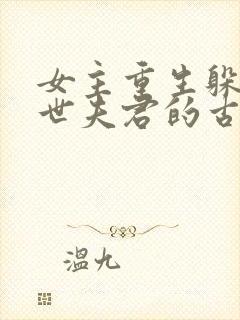 女主重生躲
世夫君的古
溫九